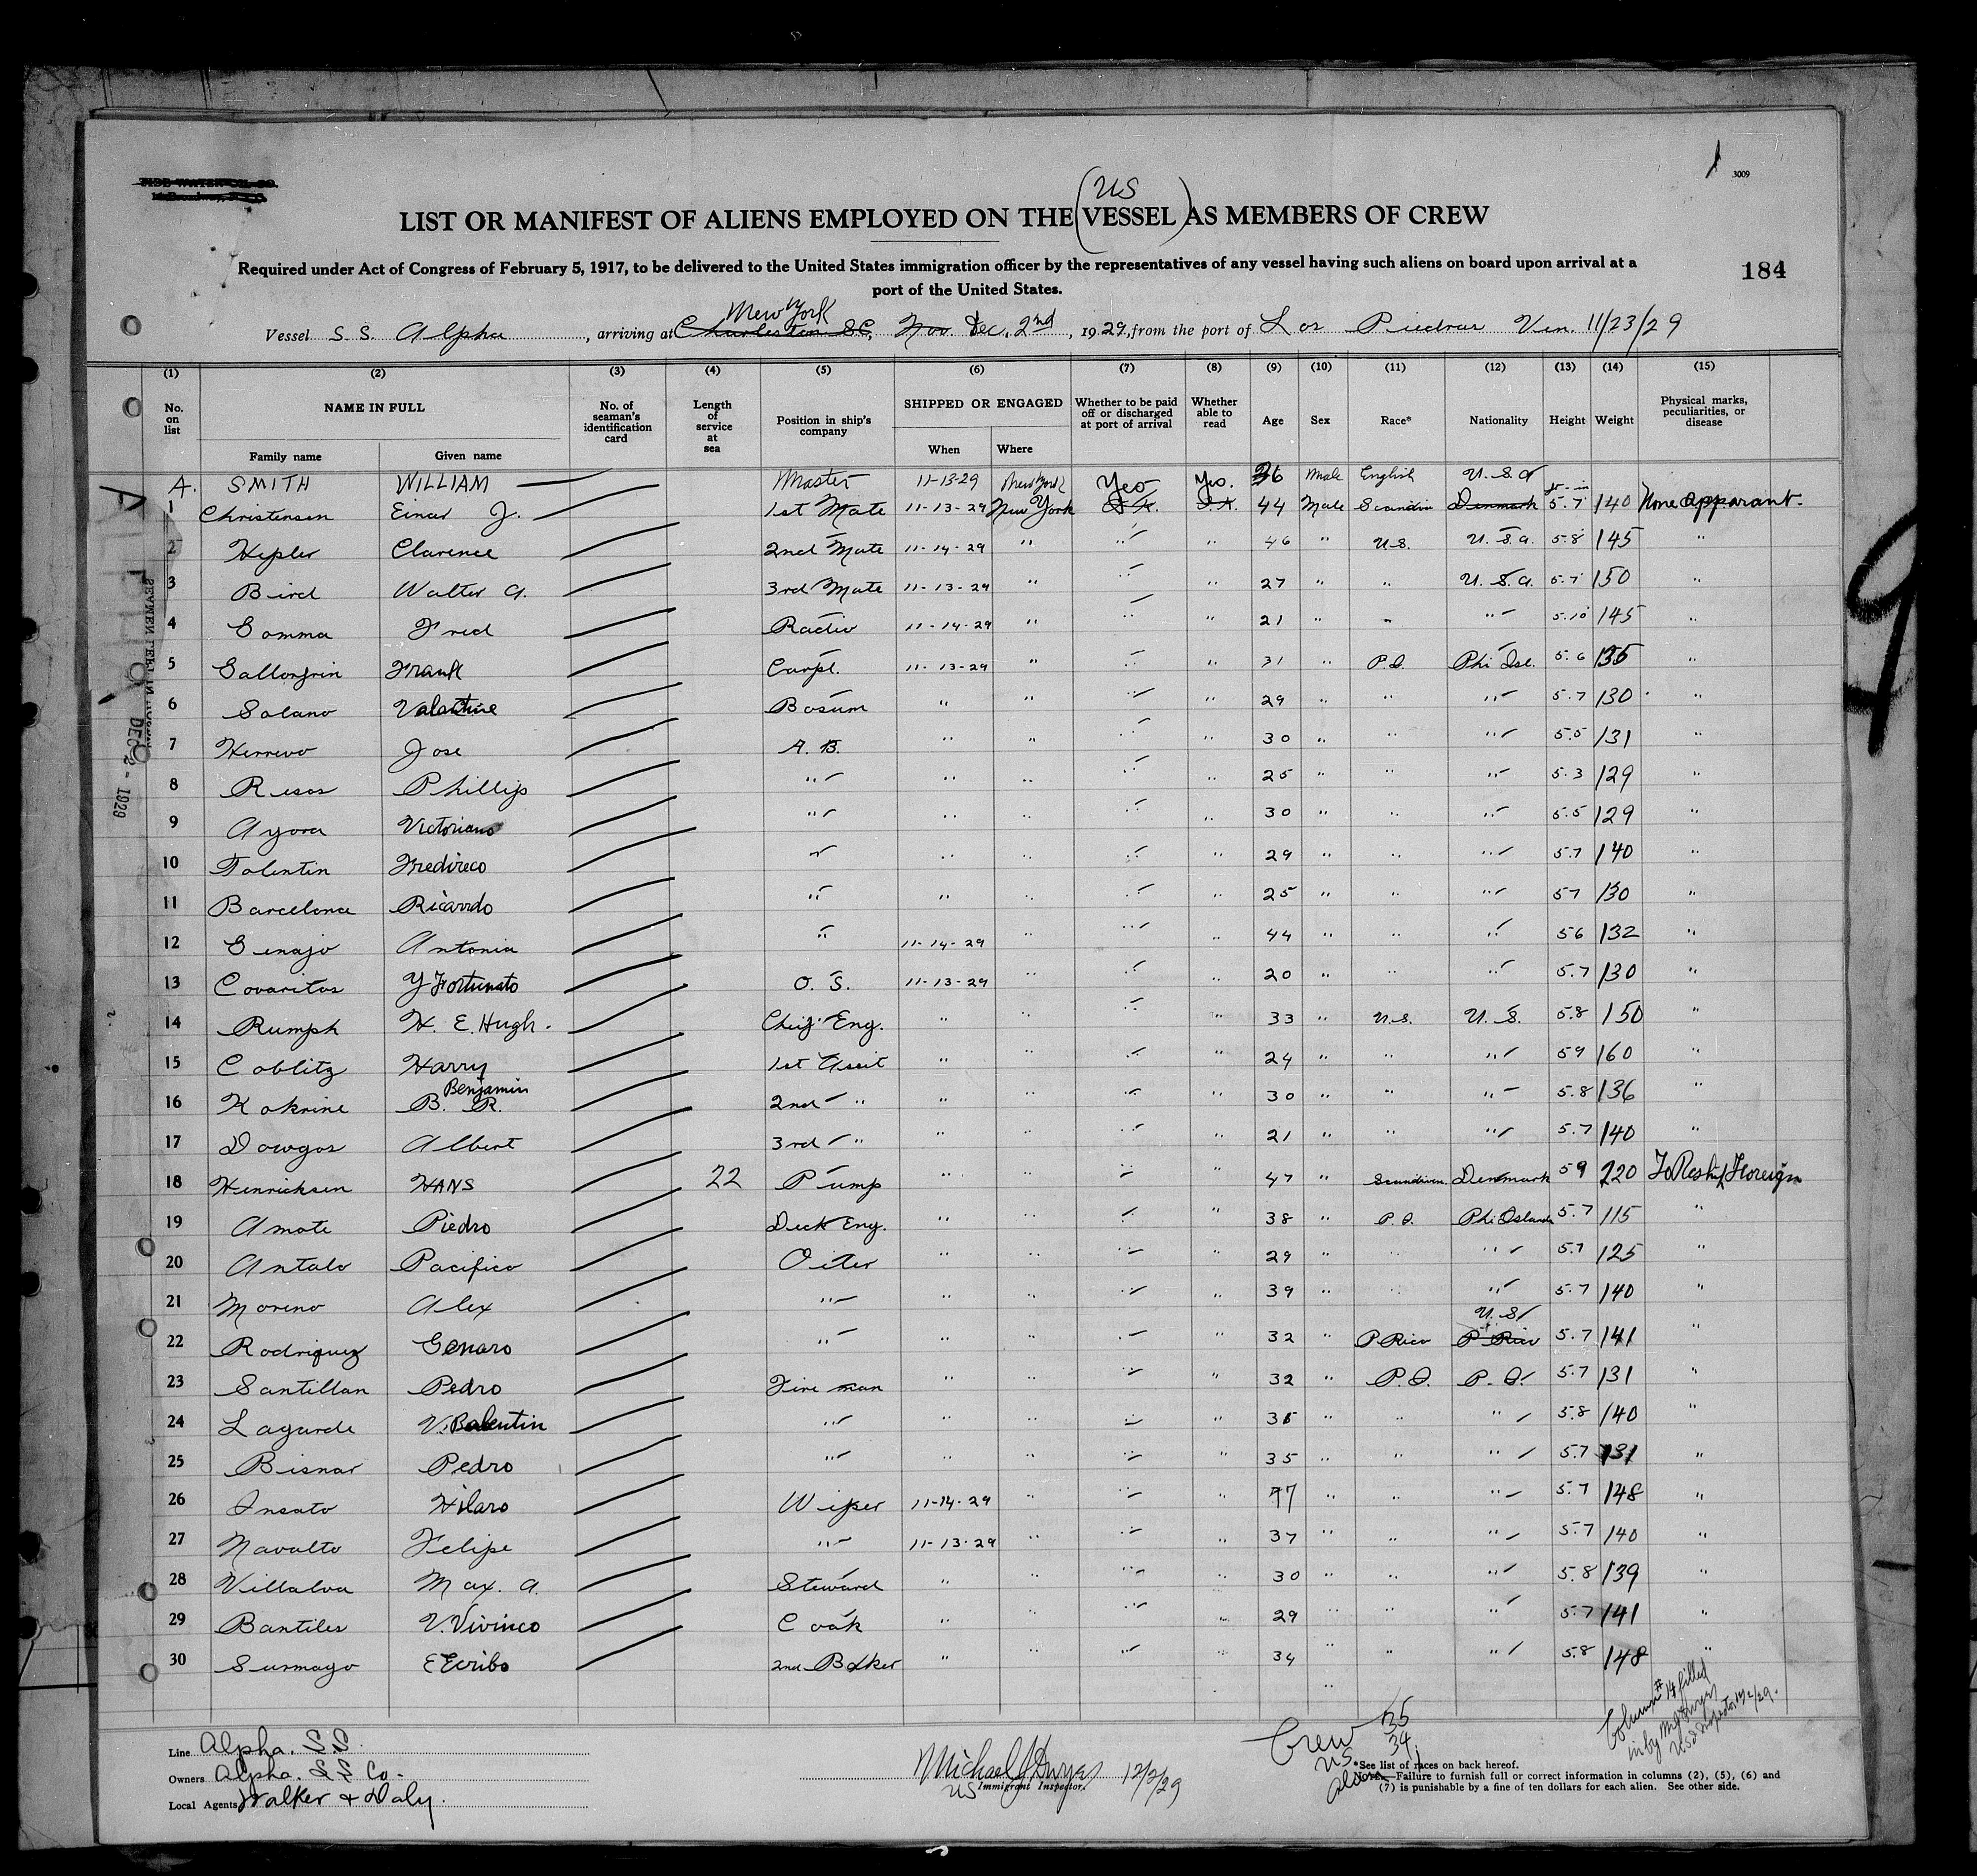 3009
US
LIST OR MANIFEST OF ALIENS EMPLOYED ON THE (VESSEL) AS MEMBERS OF CREW
Required under Act of Congress of February 5, 1917, to be delivered to the United States immigration officer by the representatives of any vessel having such aliens on board upon arrival at a
port of the United States.
184
New York
Vessel S. S. Alpha, arriving at Charleston S.C, Nov. Dec. 2nd, 1929, from the port of Los Piedras Ven. 11/23/29
(1) (2) (3) (4) (5) (6) (7) (8) (9) (10) (11) (12) (13) (14) (15)
No. on list NAME IN FULL No. of seaman's identification card Length of service at sea Position in ship's company SHIPPED OR ENGAGED Whether to be paid off or discharged at port of arrival Whether able to read Age Sex Race* Nationality Height Weight Physical marks, peculiarities, or disease
Family name Given name When Where
A. SMITH WILLIAM Master 11-13-29 New York Yes Yes. 36 Male English U.S.A
1 Christensen Einar J. 1st Mate 11-13-29 New York 44 Male Scandin Denmark 5.7 140 None apparant.
2 Hepler Clarence 2nd Mate 11-14-29 " " " 46 " U.S. U.S.A. 5.8 145 "
3 Bird Walter A. 3rd Mate 11-13-29 " " " 27 " " U.S.A. 5.7 150 "
4 Somma Fred Radio 11-14-29 " " " 21 " " " 5.10 145 "
5 Frank Carpt. 11-13-29 " " " 31 " P.I. Phi Isl. 5.6 135 "
6 Solano Valantine Bosum " " " " 29 " " " 5.7 130 "
7 Jose A.B. " " " " 30 " " " 5.5 131 "
8 Resos Phillip " " " " " 25 " " " 5.3 129 "
9 Ayora Victoriano " " " " " 30 " " " 5.5 129 "
10 Tolentin Fredireco " " " " " 29 " " " 5.7 140 "
11 Barcelona Ricardo " " " " " 25 " " " 5.7 130 "
12 Antonia " 11-14-29 " " " 44 " " " 5.6 132 "
13 Covaritos Y Fortunato O. S. 11-13-29 " " " 20 " " " 5.7 130 "
14 Rumph H. E. Hugh. Chief Eng. " " " " 33 " U.S. U.S. 5.8 150 "
15 Coblitz Harry 1st Assit " " " " 24 " " " 5.9 160 "
Benjamin
16 Kokrine B. R. 2nd " " " " " 30 " " " 5.8 136 "
17 Dowgos Albert 3rd " " " " " 21 " " " 5.7 140 "
18 Henricksen HANS 22 Pump " " " " 47 " Scandiven Denmark 5.9 220 To Foreign
19 Amote Piedro Deck Eng. " " " " 38 " P.I. Phi Islands 5.7 115 "
20 Antalo Pacifico Oiler " " " " 29 " " " 5.7 125 "
21 Moreno Alex " " " " " 39 " " " 5.7 140 "
U.S.
22 Rodriquez Genaro " " " " " 32 " P. Rico P. Rico 5.7 141 "
23 Santillan Pedro Fire man " " " " 32 " P.I. P.I. 5.7 131 "
24 Lagarde V. Balentin " " " " " 36 " " " 5.8 140 "
25 Bisnar Pedro " " " " " 35 " " " 5.7 131 "
26 Insato Hilaro Wiper 11-14-29 " " " " " " 5.7 148 "
27 Navalto Felipe " 11-13-29 " " " 37 " " " 5.7 140 "
28 Villalva Max. A. Steward " " " " 30 " " " 5.8 139 "
29 Bantiles V. Vivinco Cook " " " " 29 " " " 5.7 141 "
30 Surmayo 2nd Baker " " " " 34 " " " 5.8 148 "
DEC 2 - 1929
Column # 14 filled
in by
U.S. Inspector 12/2/29.
Line Alpha. SS
Owners Alpha. SS Co.
Local Agents Walker & Daly.
US Immigrant Inspector. 12/2/29
Crew 35
US 34
Alien 1
*See list of races on back hereof.
Note.—Failure to furnish full or correct information in columns (2), (5), (6) and
(7) is punishable by a fine of ten dollars for each alien. See other side.